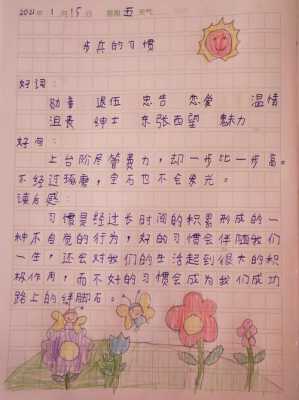 2021年 1月15日 星期五 天气
步兵的习惯
好词:
勋章 退伍 忠告 恋爱 温情
沮丧 绅士 东张西望 魅力
好句:
上台阶尽管费力,却一步比一步高。
不经过琢磨,宝石也不会发光。
读后感:
习惯是经过长时间的积累形成的一
种不自觉的行为,好的习惯会伴随我们
一生,还会对我们的生活起到很大的积
极作用,而不好的习惯会成为我们成功
路上的绊脚石。